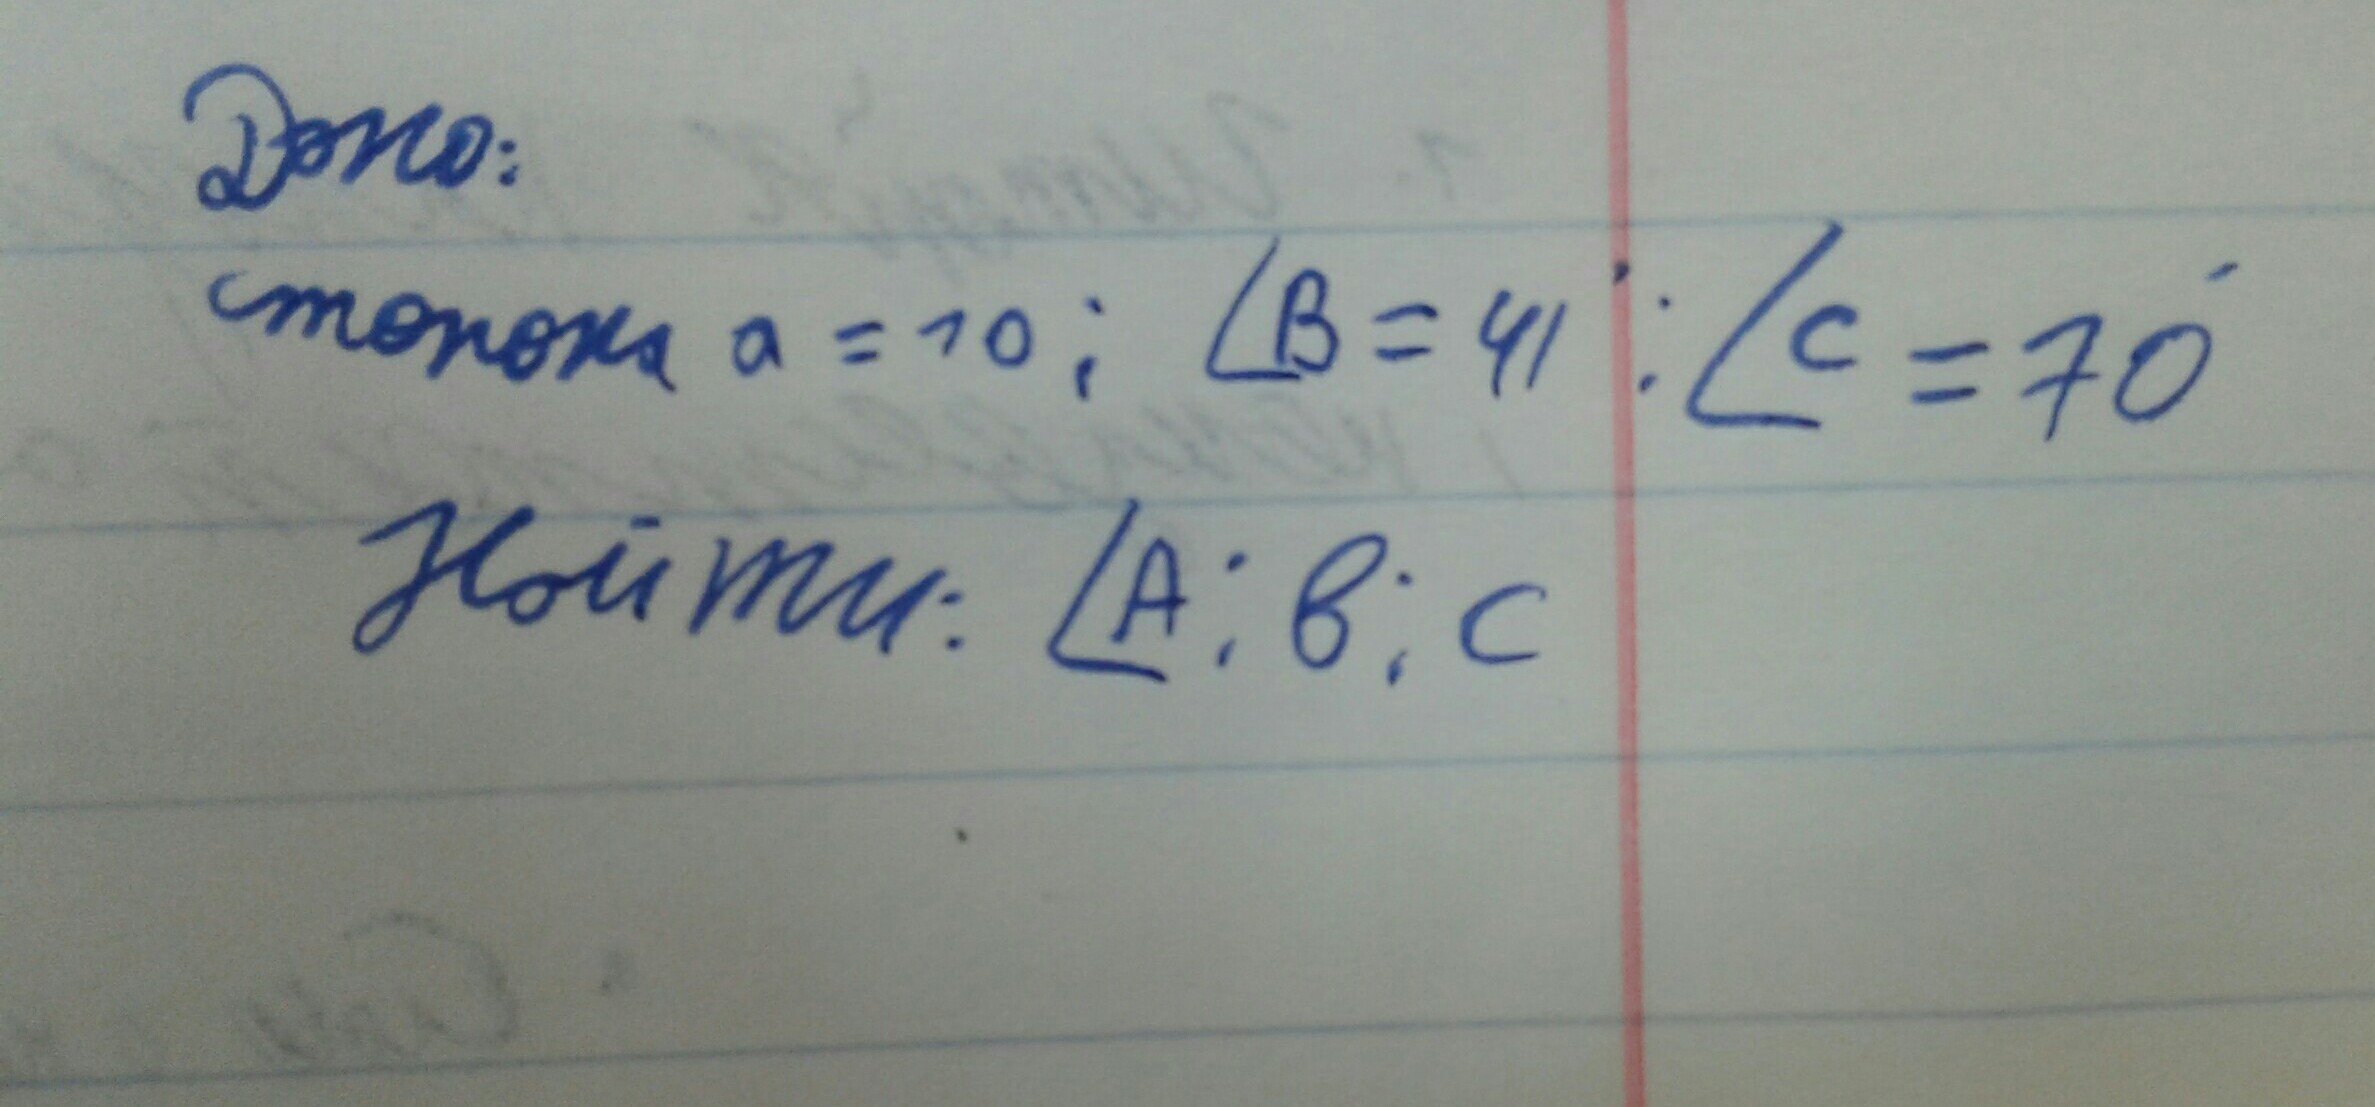 Дано:
сторона a = 10; ∠B = 41°; ∠C = 70°
Найти: ∠A; b; c